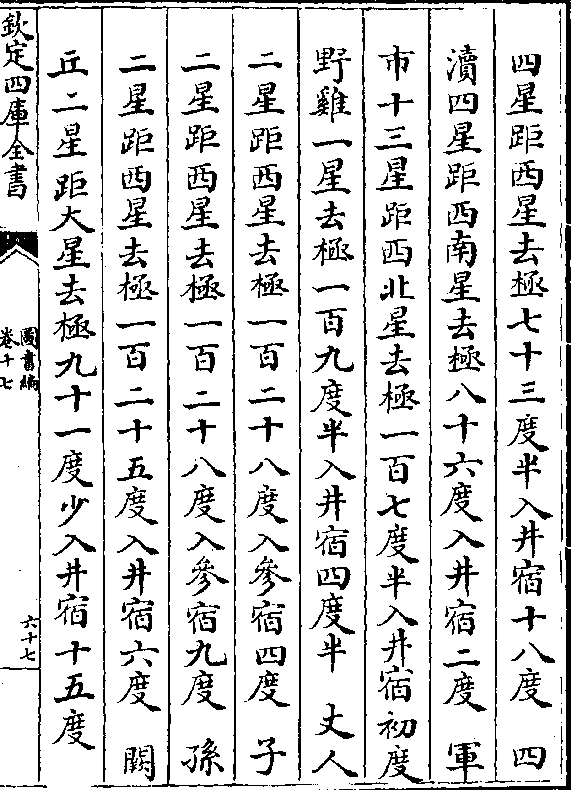 四星距西星去極七十三度半入井宿十八度　四
瀆四星距西南星去極八十六度入井宿二度　軍
市十三星距西北星去極一百七度半入井宿初度
野雞一星去極一百九度半入井宿四度半　丈人
二星距西星去極一百二十八度入參宿四度　子
二星距西星去極一百二十八度入參宿九度　孫
二星距西星去極一百二十五度入井宿六度　闕
丘二星距大星去極九十一度少入井宿十五度
欽定四庫全書
圖書編
卷十七
六十七